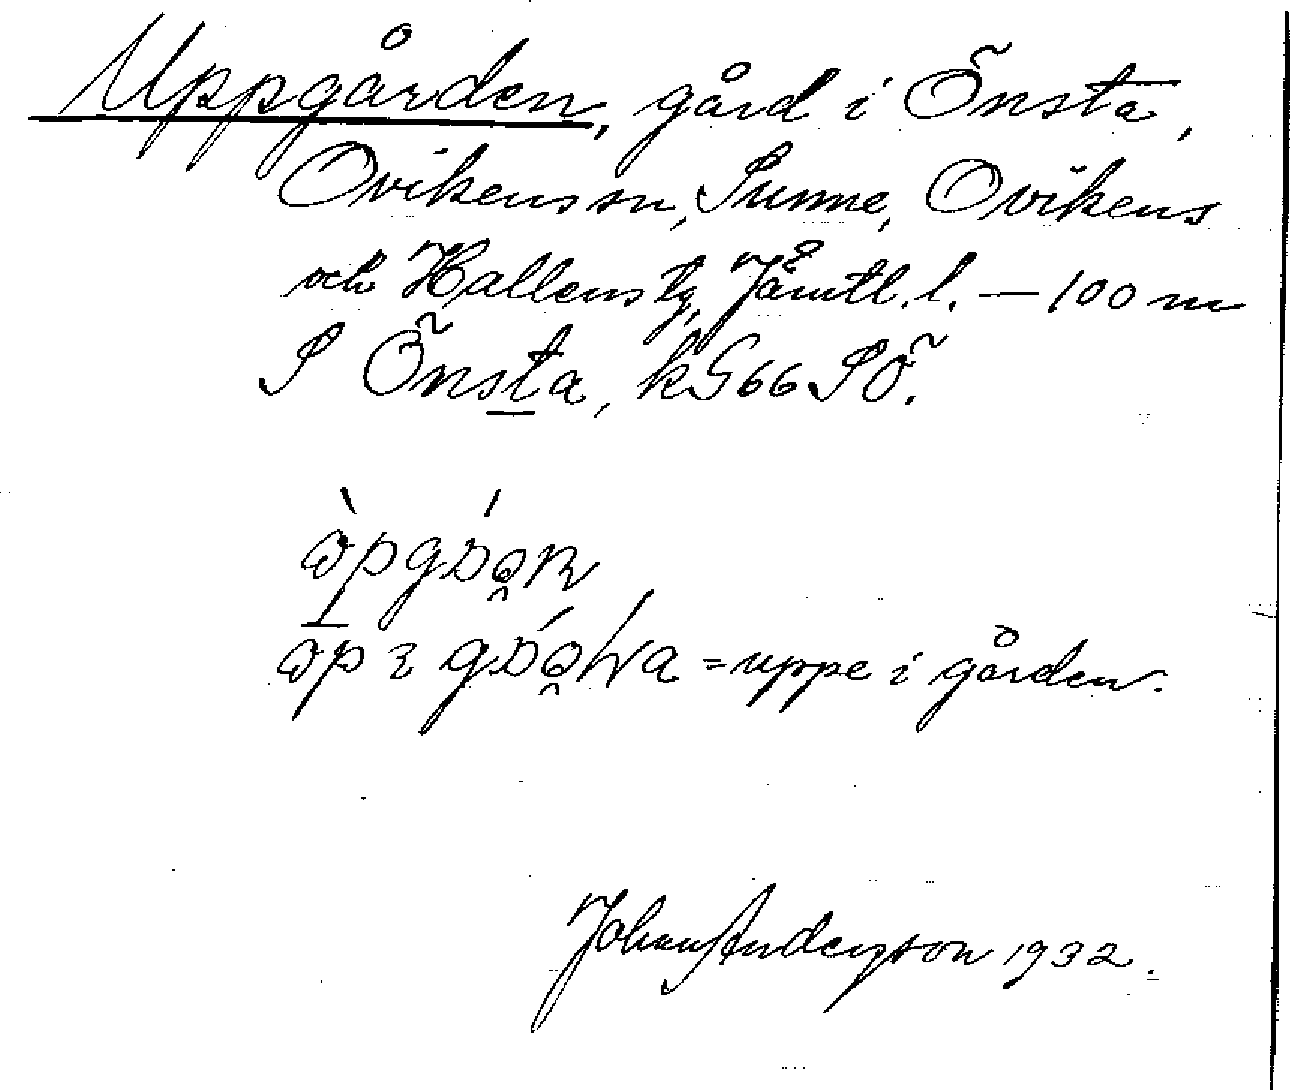 Uppgården, gård i Önsta,
Ovikens sn, Sunne, Ovikens
och Hallens tg, Jämtl. l. — 100 m
S Önsta, k G66 SÖ.
= uppe i gården.
Johan Anderson 1932.